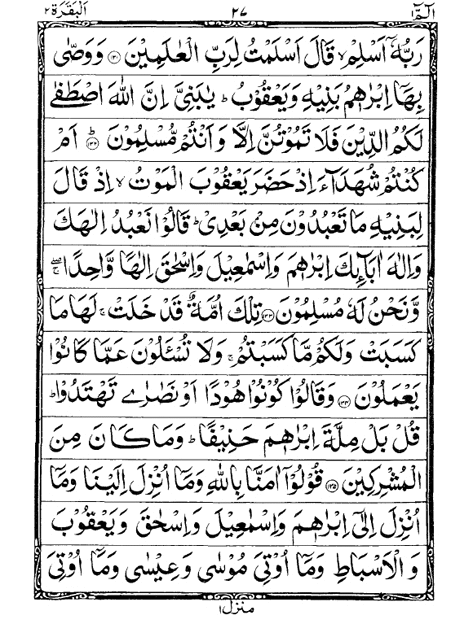 الٓمّٓ ١ ٢٧ البقرة ٢
رَبُّهٗٓ اَسْلِمْ ۙ قَالَ اَسْلَمْتُ لِرَبِّ الْعٰلَمِيْنَ ﴿۱۳۱﴾ وَوَصّٰى
بِهَآ اِبْرٰهٖمُ بَنِيْهِ وَيَعْقُوْبُ ؕ يٰبَنِيَّ اِنَّ اللّٰهَ اصْطَفٰى
لَكُمُ الدِّيْنَ فَلَا تَمُوْتُنَّ اِلَّا وَاَنْتُمْ مُّسْلِمُوْنَ ﴿۱۳۲﴾ؕ اَمْ
كُنْتُمْ شُهَدَآءَ اِذْ حَضَرَ يَعْقُوْبَ الْمَوْتُ ۙ اِذْ قَالَ
لِبَنِيْهِ مَا تَعْبُدُوْنَ مِنْۢ بَعْدِيْ ؕ قَالُوْا نَعْبُدُ اِلٰهَكَ
وَاِلٰهَ اٰبَآئِكَ اِبْرٰهٖمَ وَاِسْمٰعِيْلَ وَاِسْحٰقَ اِلٰهًا وَّاحِدًا ۚۖ
وَّنَحْنُ لَهٗ مُسْلِمُوْنَ ﴿۱۳۳﴾ تِلْكَ اُمَّةٌ قَدْ خَلَتْ ۚ لَهَا مَا
كَسَبَتْ وَلَكُمْ مَّا كَسَبْتُمْ ۚ وَلَا تُسْئَلُوْنَ عَمَّا كَانُوْا
يَعْمَلُوْنَ ﴿۱۳۴﴾ وَقَالُوْا كُوْنُوْا هُوْدًا اَوْ نَصٰرٰى تَهْتَدُوْا ؕ
قُلْ بَلْ مِلَّةَ اِبْرٰهٖمَ حَنِيْفًا ؕ وَمَا كَانَ مِنَ
الْمُشْرِكِيْنَ ﴿۱۳۵﴾ قُوْلُوْٓا اٰمَنَّا بِاللّٰهِ وَمَآ اُنْزِلَ اِلَيْنَا وَمَآ
اُنْزِلَ اِلٰٓى اِبْرٰهٖمَ وَاِسْمٰعِيْلَ وَاِسْحٰقَ وَيَعْقُوْبَ
وَالْاَسْبَاطِ وَمَآ اُوْتِيَ مُوْسٰى وَعِيْسٰى وَمَآ اُوْتِيَ
منزل ١